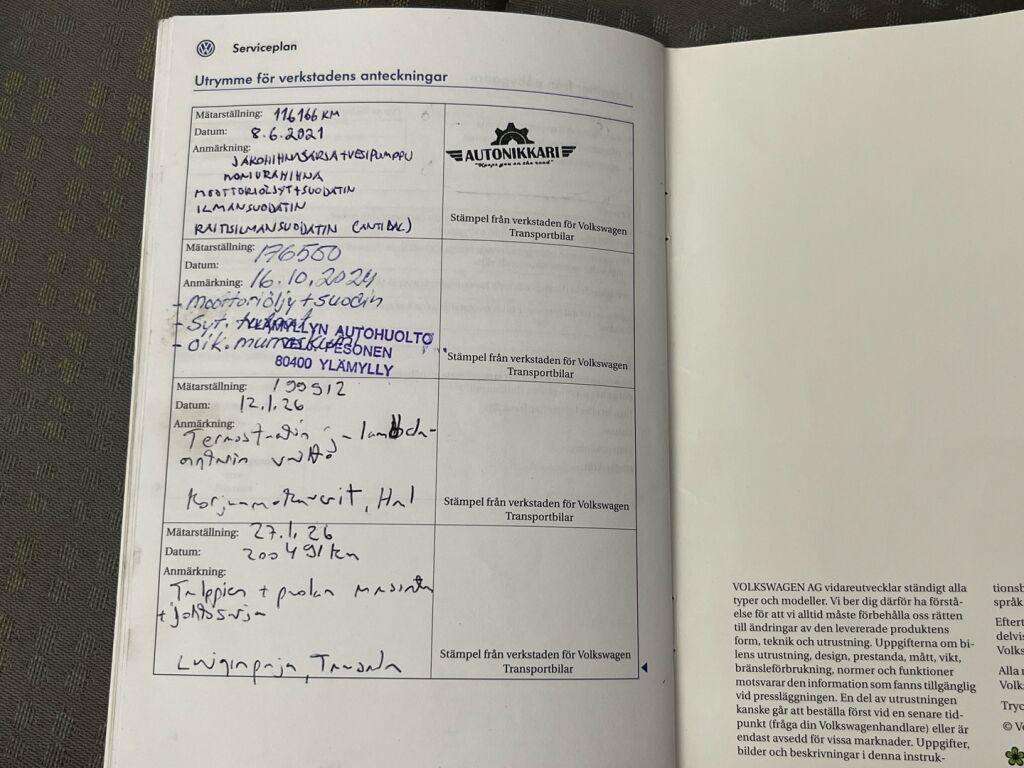 Serviceplan
Utrymme för verkstadens anteckningar
Mätarställning: 116166 KM
Datum: 8.6.2021
Anmärkning:
JAKOHIHNASARJA+VESIPUMPPU
MONIURAHIHNA
MOOTTORIÖLJYT+SUODATIN
ILMANSUODATIN
RAITISILMANSUODATIN (ANTIBAC)
AUTONIKKARI
"Keeps you on the road"
Stämpel från verkstaden för Volkswagen
Transportbilar
Mätarställning: 176550
Datum:
Anmärkning: 16.10.2024
- Moottoriöljy+suodin
- Syt.
- oik.
YLÄMYLLYN AUTOHUOLTO
PESONEN
80400 YLÄMYLLY
Stämpel från verkstaden för Volkswagen
Transportbilar
Mätarställning: 199912
Datum: 12.1.26
Anmärkning:
Termostaatin ja lambda-
anturin vaihto
Stämpel från verkstaden för Volkswagen
Transportbilar
Mätarställning: 27.1.26
Datum: 200491km
Anmärkning:
Tulppien + puolan
+ johtosarja
Stämpel från verkstaden för Volkswagen
Transportbilar
VOLKSWAGEN AG vidareutvecklar ständigt alla
typer och modeller. Vi ber dig därför ha förstå-
else för att vi alltid måste förbehålla oss rätten
till ändringar av den levererade produktens
form, teknik och utrustning. Uppgifterna om bi-
lens utrustning, design, prestanda, mått, vikt,
bränsleförbrukning, normer och funktioner
motsvarar den information som fanns tillgänglig
vid pressläggningen. En del av utrustningen
kanske går att beställa först vid en senare tid-
punkt (fråga din Volkswagenhandlare) eller är
endast avsedd för vissa marknader. Uppgifter,
bilder och beskrivningar i denna instruk-
tionsb
språk
Eftert
delvis
Volks
Alla
Volks
Tryc
© Vo